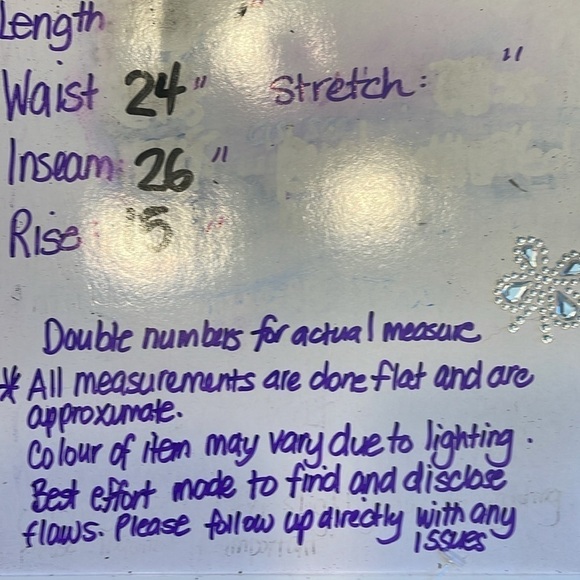 Length
Waist 24" Stretch: "
Inseam: 26"
Rise 15
Double numbers for actual measure
* All measurements are done flat and are
approximate.
Colour of item may vary due to lighting.
Best effort made to find and disclose
flaws. Please follow up directly with any
issues